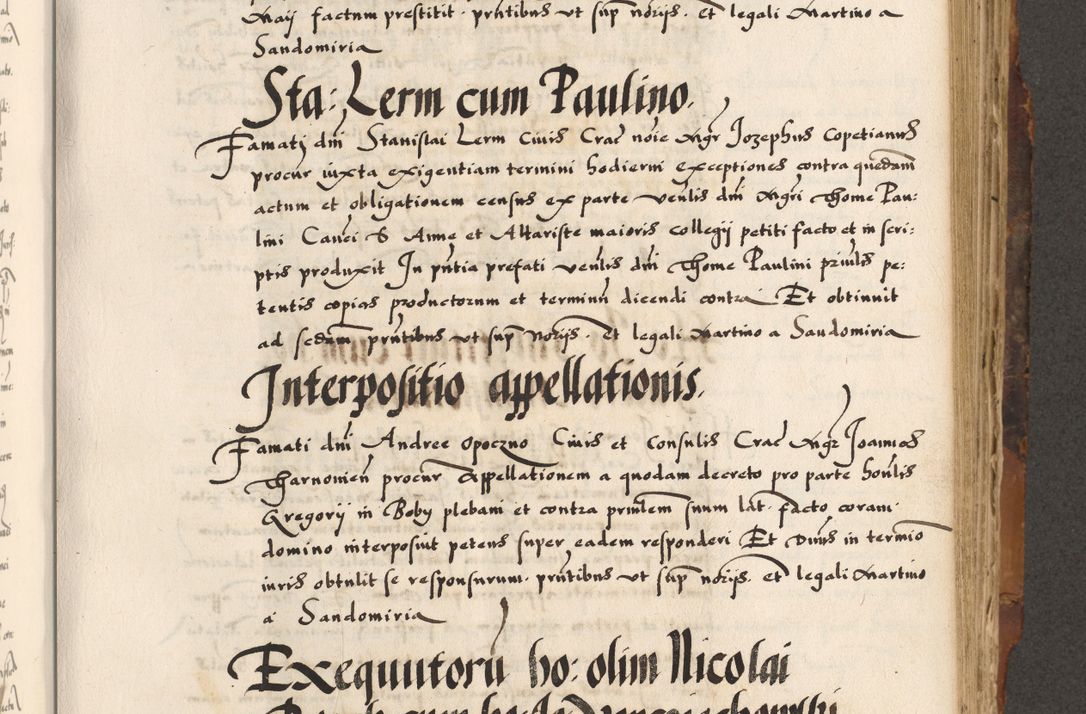 Maij factum prestitit · prñtibus vt sup norijs · Et legali Martino a
Sandomiria
Sta: Lerm cum Paulino.
Famati dñi Stanislai Lerm Ciuis Crac noie Mgr Jozephus Copetianus
procur iuxta exigentiam termini hodierni exceptiones contra quendam
actum et obligationem census ex parte venlis dñi Mgri Thome Pau:
lini Canci S Anne et Altariste maioris collegij petiti facto et in scri:
ptis produxit In pñtia prefati venlis dñi Thome Paulini priulis pe:
tentis copias productorum et terminũ dicendi contra Et obtinuit
ad secdam prñtibus vt sup Norijs · Et legali Martino a Sandomiria
Interpositio appellationis.
Famati dñi Andree Opoczno Ciuis et Consulis Crac Mgr Joannes
Tharnowieñ procur Appellationem a quodam decreto pro parte honlis
Gregorij in Boby plebani et contra prinlem suum lat · facto coram
domino interposuit petens super eadem responderi Et Dnus in termio
iuris obtulit se responsurum · prñtibus vt sup norijs · et legali Martino
a Sandomiria
Exequutorũ ho: olim Nicolai